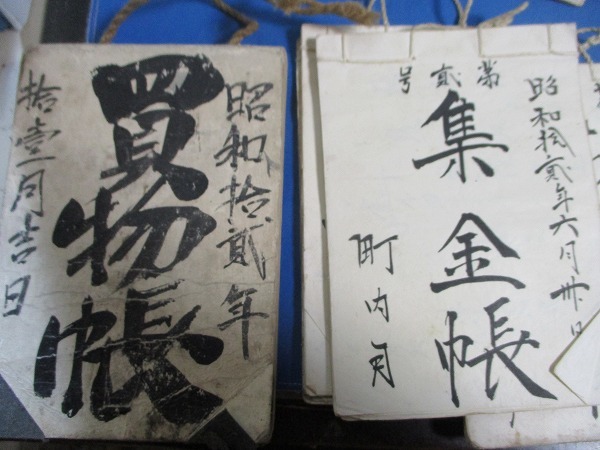 昭和拾貳年
買物帳
拾壹月吉日
昭和拾貳年六月卅日
第貳号
集金帳
町内